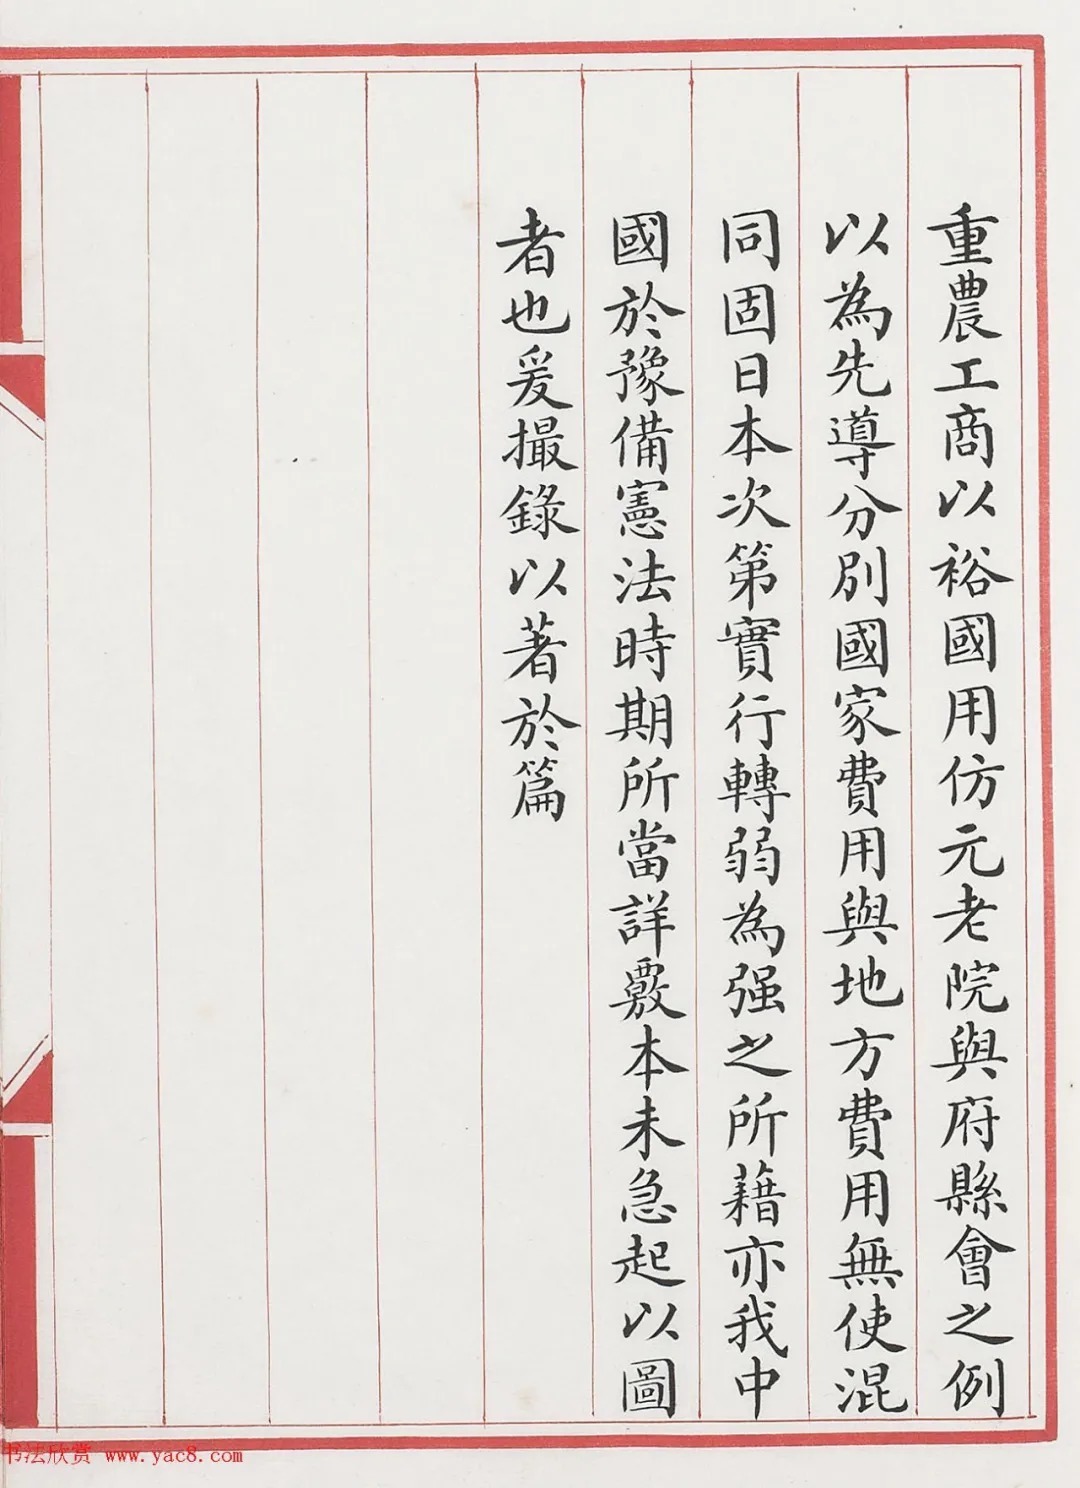 重農工商以裕國用仿元老院與府縣會之例
以為先導分別國家費用與地方費用無使混
同固日本次第實行轉弱為强之所藉亦我中
國於豫備憲法時期所當詳覈本末急起以圖
者也爰撮錄以著於篇
书法欣赏 www.yac8.com